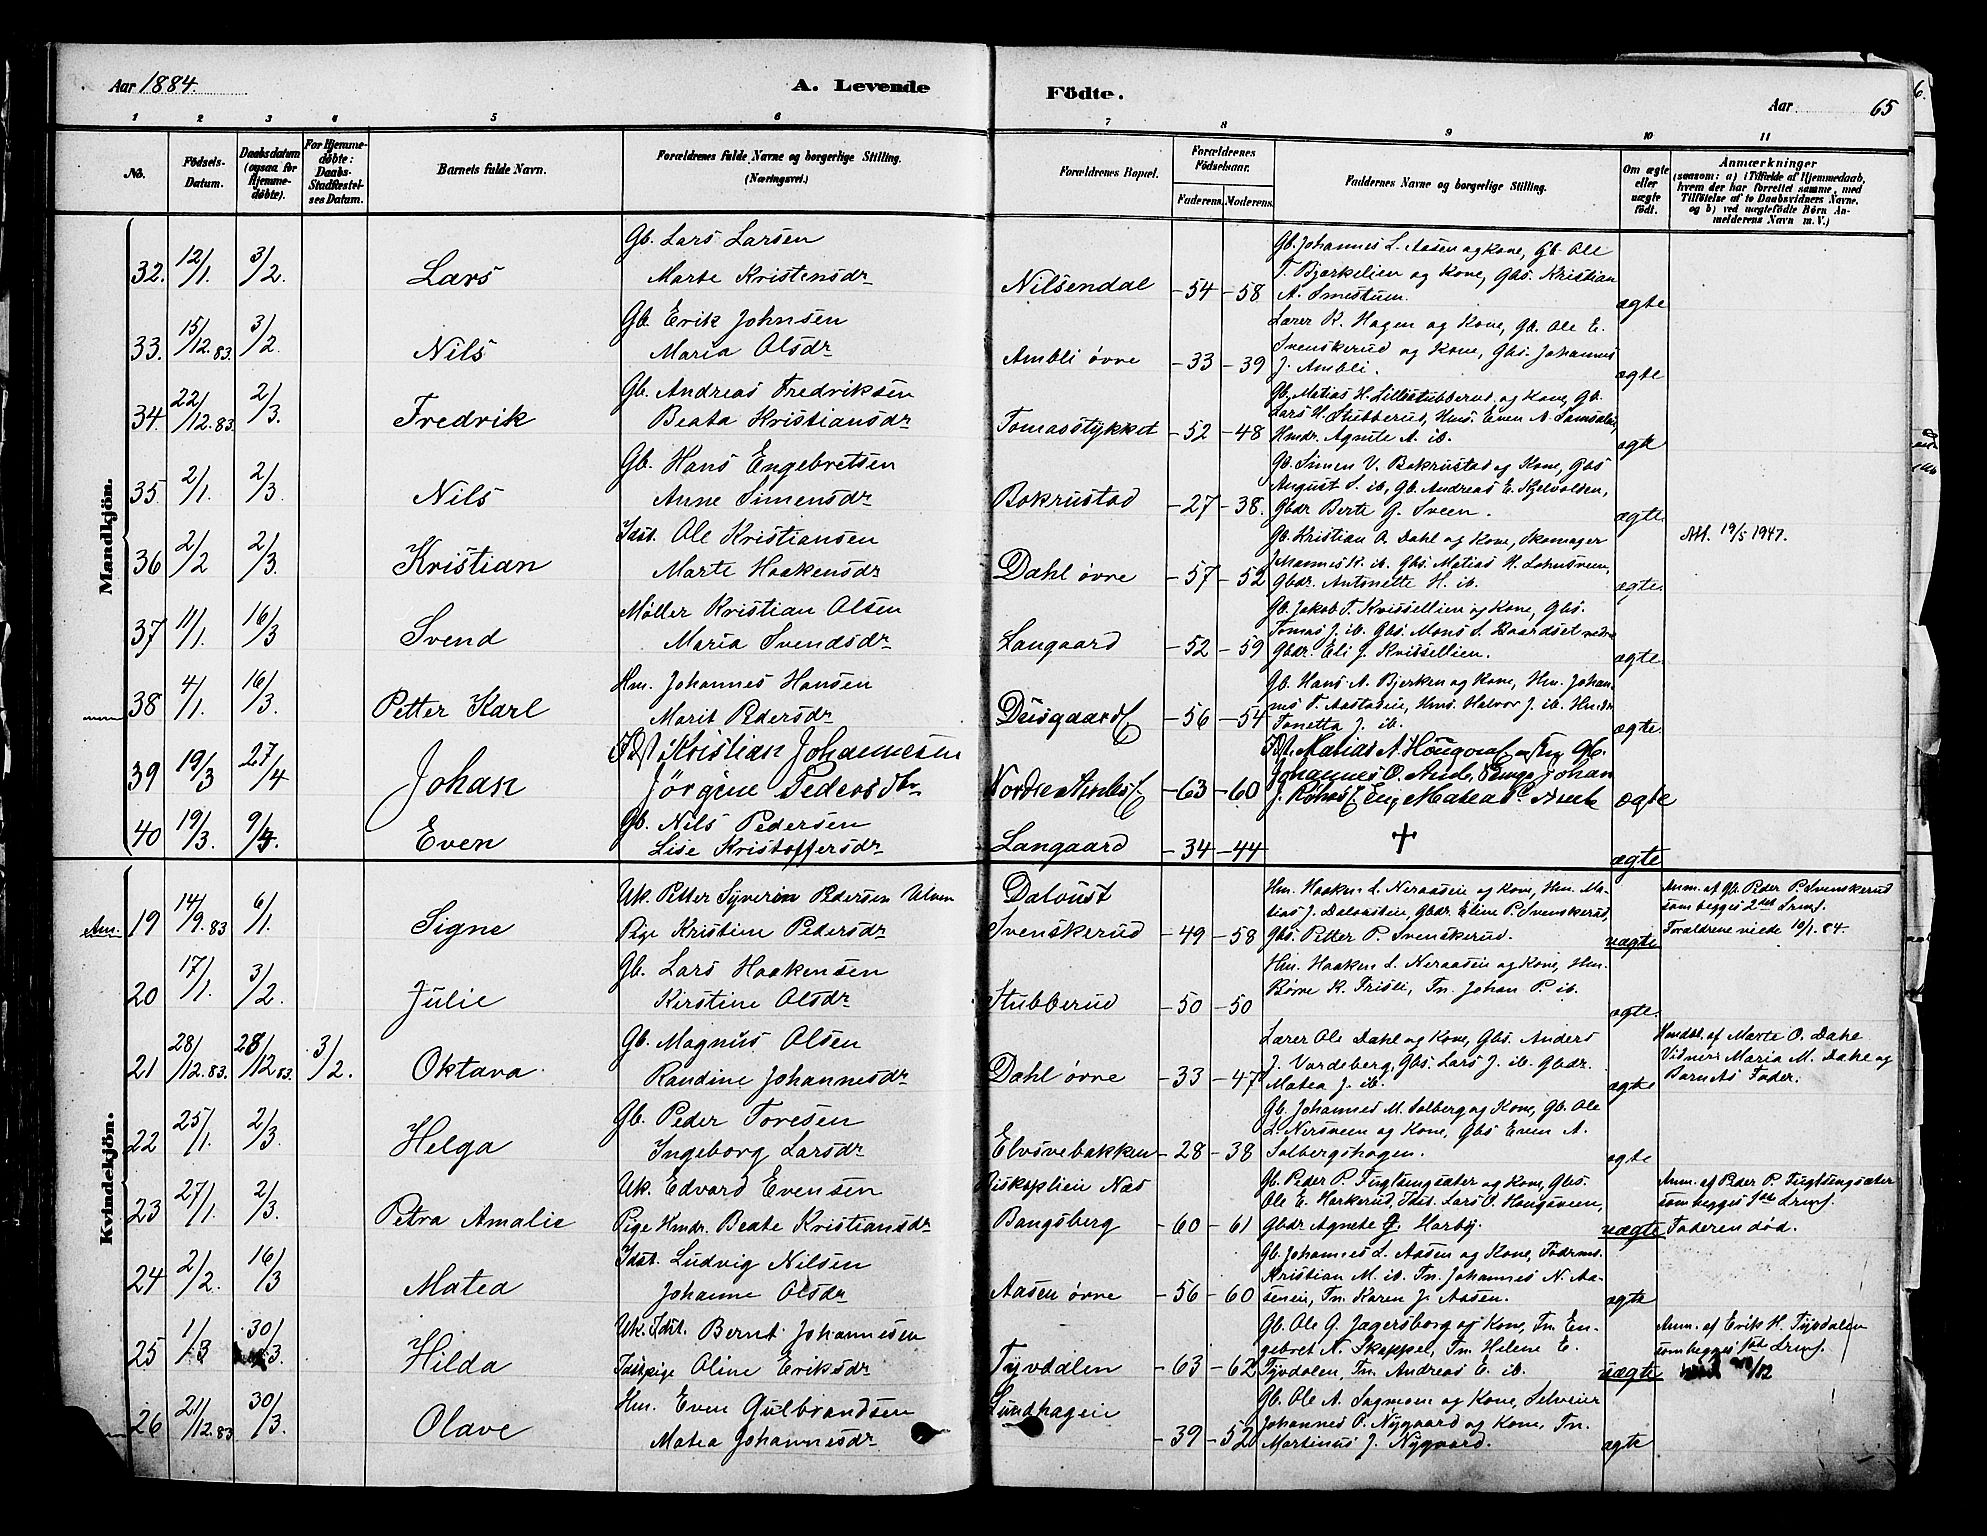 Aar 1884.
A. Levende
Födte.
Aar
65
1 2 3 4 5 6 7 8 9 10 11
No.
Födsels-Datum.
Daabsdatum (ogsaa for Hjemme-døbte).
For Hjemme-døbte: Daabs-Stadfæstel-ses Datum.
Barnets fulde Navn.
Forældrenes fulde Navne og borgerlige Stilling. (Næringsvei.)
Forældrenes Bopæl.
Forældrenes Födselsaar.
Faderens. Moderens.
Faddernes Navne og borgerlige Stilling.
Om ægte eller uægte født.
Anmærkninger
(saasom: a) i Tilfælde af Hjemmedaab, hvem der har forrettet samme, med Tilføielse af to Daabsvidners Navne, og b) ved uægtefødte Børn Anmelderens Navn m. V.)
Mandkjön.
32. 12/1. 3/2. Lars
Gb. Lars Larsen
Marte Kristensdr
Nilsendal -54 -58
Gb. Johannes L. Aasen og Kone, Gb. Ole
T. Bjørkelien og Kone, Gbs. Kristian
A. Smestuen.
ægte
33. 15/12.83. 3/2. Nils
Gb. Erik Johnsen
Maria Olsdr
Ambli øvre -33 -39
Lærer K. Hagen og Kone, Gb. Ole E.
Svenskerud og Kone, Gbs. Johannes
J. Ambli.
ægte
34. 22/12.83. 2/3. Fredrik
Gb. Andreas Fredriksen
Beata Kristiansdr
Tomasstykket -52 -48
Gb. Matias H. Lillestubberud og Kone, Gb.
Lars H. Stubberud, Hms. Even A.
Hmdr. Agnete A. ib.
ægte
35. 2/1. 2/3. Nils
Gb. Hans Engebretsen
Anne Simensdr
Bakrustad -27 -38.
Gb. Simen V. Bakrustad og Kone, Gbs
August S. ib, Gb. Andreas E. Kjelvolden,
Gbdr Berte G. Sveen.
ægte.
36 2/2 2/3. Kristian
Idst. Ole Kristiansen
Marte Haakensdr
Dahl øvre -57 -52
Gb. Kristian O. Dahl og Kone, Skomager
H. ib. Gbs. Matias
Gbdr. Antonette H. ib.
ægte.
Att. 19/5 1947.
37 11/1. 16/3 Svend
Møller Kristian Olsen
Maria Svendsdr
Langaard -52 -59
Gb. Jakob T. Kvissellien og Kone, Gbs.
Tomas J. ib. Gbs. Mons S. Baardset nedre
Gbdr. Eli J. Kvissellien.
ægte.
38 4/1. 16/3. Petter Karl
Hm. Johannes Hansen
Marit Pedersdr
-56 -54
Gb. Hans A. Bjerken og Kone, Hm. Johan-
nes T. Aastadeie, Hms. Halvor J. ib. Hmdr
Tonetta J. ib.
ægte.
39 19/3 27/4 Johan
Idst. Kristian Johannesen
Jörgine Pedersdtr
-63 -60
Idst. Matias A.
Johannes O. Johan
J.
ægte
40 19/3. 9/4. Even
Gb. Nils Pedersen
Lise Kristoffersdr
Langaard -34 -44
+
ægte
Kvindekjön.
Am.
19 14/9.83 6/1. Signe
Uk. Petter Syverin Pedersen Ulven
Pige Kristine Pedersdr
Daloust
Svenskerud -49 -58
Hm. Haaken L. Neraaseie og Kone, Hm. Ma-
tias J. Dalousteie, Gbdr. Eline P. Svenskerud,
Gbs. Petter P. Svenskerud.
uægte
Anm. af Gb. Peder P. Svenskerud
som begges 2det Lvmf.
Forældrene viede 10/1. 84.
20 17/1. 3/2. Julie
Gb. Lars Haakensen
Kirstine Olsdr
Stubberud -50 -50
Hm. Haaken L. Neraaseie og Kone, Hm.
Børre K. Frisli, Tn. Johan P. ib.
ægte.
21 28/12.83. 28/12 83. 3/2. Oktava
Gb. Magnus Olsen
Randine Johannesdr
Dahl øvre -33 -47
Lærer Ole Dahl og Kone, Gbs. Anders
J. Vardeberg, Gbs. Lars J. ib. Gbdr.
Matea J. ib.
ægte
Hmdbt. af Marte O. Dahl
Vidner: Maria M. Dahl og
Barnets Fader.
22 25/1. 2/3. Helga
Gb. Peder Toresen
Ingeborg Larsdr
Elvsvebakken -28 -38
Gb. Johannes M. Solberg og Kone, Gb. Ole
L. Nersveen og Kone, Gbs Even A.
Solbergshagen.
ægte
23 27/1. 2/3. Petra Amalie
Uk. Edvard Evensen
Pige Hmdr. Beate Kristiansdr
Biskoplien Næs
Bangsberg -60 -61
Gb. Peder P. Fuglungsæter og Kone, Gbs.
Ole E. Harkerud, Idst. Lars O. Haugsveen,
Gbdr Agnete G. Harby.
uægte
Anm. af Peder P. Fuglungsæter
som begges 1ste Lvmf.
Faderen død.
24 2/2. 16/3 Matea
Idst. Ludvig Nilsen
Johanne Olsdr
Aasen øvre -56 -60
Gb. Johannes L. Aasen og Kone, Føderms.
Kristian M. ib. Tn. Johannes N. Aa-
seneie, Tn. Karen J. Aasen.
ægte
25 1/3 30/3. Hilda
Uk. Idst. Bernt Johannesen
Tuspige Oline Eriksdr
Tyvdalen -63 -62
Gb. Ole G. Jagersborg og Kone, Tn. En-
gebret N. Skappel, Tn. Helene E.
Tyvdalen, Tn. Andreas E. ib.
uægte
Anm. af Erik H. Tyvdalen
som begges 1ste Lvmf.
26 21/12.83 30/3. Olave
Hm. Even Gulbrandsen
Matea Johannesdr
Sundhagen -39 -52
Gb. Ole A. Sagmoen og Kone, Selveier
Johannes P. Nygaard og Kone, Tn.
Martinus J. Nygaard.
ægte